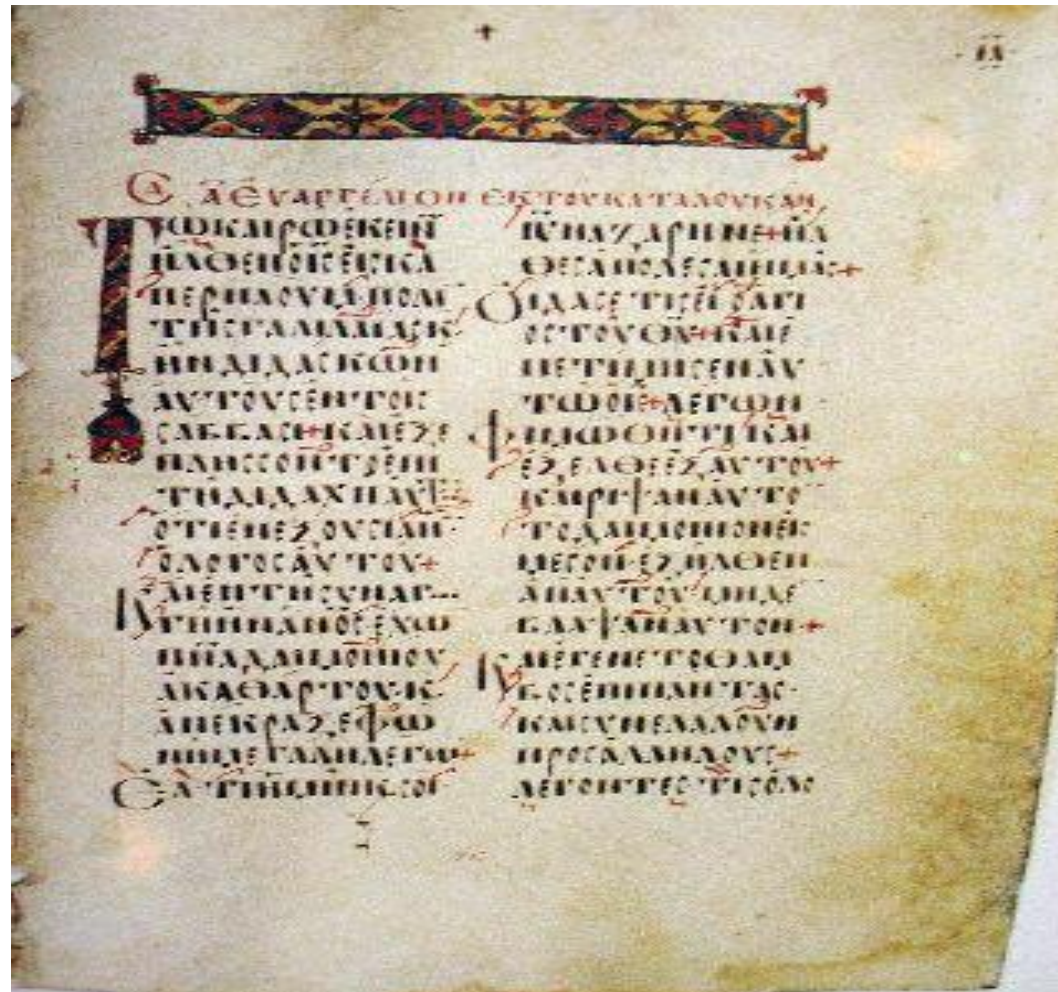 ΕΥΑΓΓΕΛΙΟΝ ΕΚ ΤΟΥ ΚΑΤΑ ΛΟΥΚΑΝ
ΤΩ ΚΑΙΡΩ ΕΚΕΙΝ
ΗΛΘΕΝ Ο ΙϹ ΕΙϹ ΚΑ
ΠΕΡΝΑΟΥΜ ΠΟΛΙ
ΤΗϹ ΓΑΛΙΛΑΙΑϹ Κ
ΗΝ ΔΙΔΑϹΚΩΝ
ΑΥΤΟΥϹ ΕΝ ΤΟΙϹ
ϹΑΒΒΑϹΙ + ΚΑΙ ΕΞΕ
ΠΛΗϹϹΟΝΤΟ ΕΠΙ
ΤΗ ΔΙΔΑΧΗ ΑΥΤΟΥ
ΟΤΙ ΕΝ ΕΞΟΥϹΙΑ ΗΝ
Ο ΛΟΓΟϹ ΑΥΤΟΥ +
ΚΑΙ ΕΝ ΤΗ ϹΥΝΑΓΩ
ΓΗ ΗΝ ΑΝΟϹ ΕΧΩ
ΠΝΑ ΔΑΙΜΟΝΙΟΥ
ΑΚΑΘΑΡΤΟΥ Κ
ΑΝΕΚΡΑΞΕ ΦΩ
ΝΗ ΜΕΓΑΛΗ ΛΕΓΩ +
ΕΑ ΤΙ ΗΜΙΝ Κ ϹΟΙ
ΙΥ ΝΑΖΑΡΗΝΕ + ΗΛ
ΘΕϹ ΑΠΟΛΕϹΑΙ ΗΜΑϹ +
ΟΙΔΑ ϹΕ ΤΙϹ ΕΙ Ο ΑΓΙ
ΟϹ ΤΟΥ ΘΥ + ΚΑΙ Ε
ΠΕΤΙΜΗϹΕΝ ΑΥ
ΤΩ Ο ΙϹ + ΛΕΓΩΝ
ΦΙΜΩΘΗΤΙ ΚΑΙ
ΕΞΕΛΘΕ ΕΞ ΑΥΤΟΥ +
ΚΑΙ ΡΙΨΑΝ ΑΥΤΟ
ΤΟ ΔΑΙΜΟΝΙΟΝ ΕΙϹ
ΜΕϹΟΝ ΕΞΗΛΘΕΝ
ΑΠ ΑΥΤΟΥ ΜΗΔΕ
ΒΛΑΨΑΝ ΑΥΤΟΝ +
ΚΑΙ ΕΓΕΝΕΤΟ ΘΑΜ
ΒΟϹ ΕΠΙ ΠΑΝΤΑϹ
ΚΑΙ ϹΥΝΕΛΑΛΟΥΝ
ΠΡΟϹ ΑΛΛΗΛΟΥϹ +
ΛΕΓΟΝΤΕϹ ΤΙϹ Ο ΛΟ